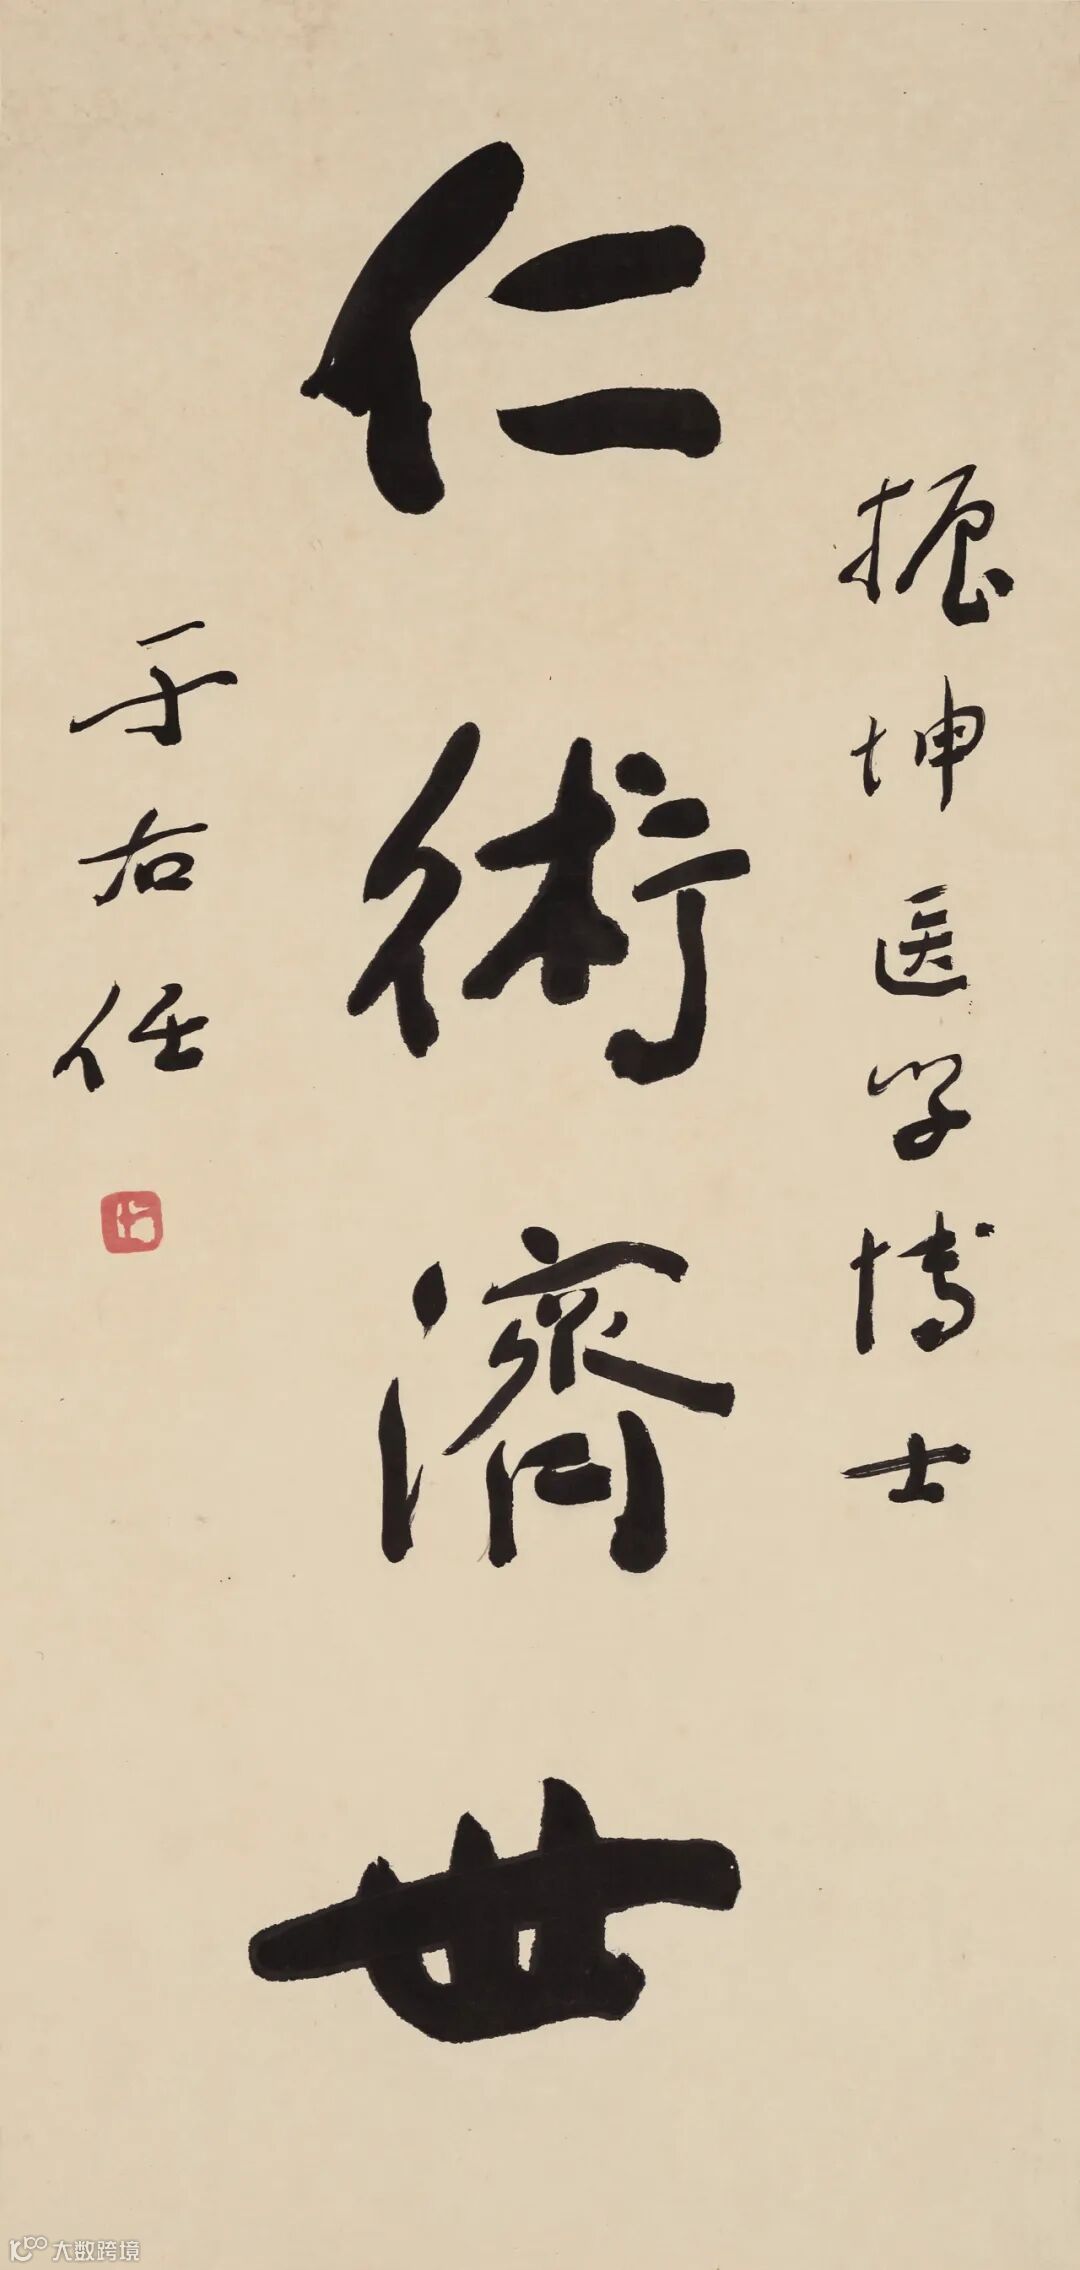 振坤医学博士
仁術濟世
于右任
大数跨境